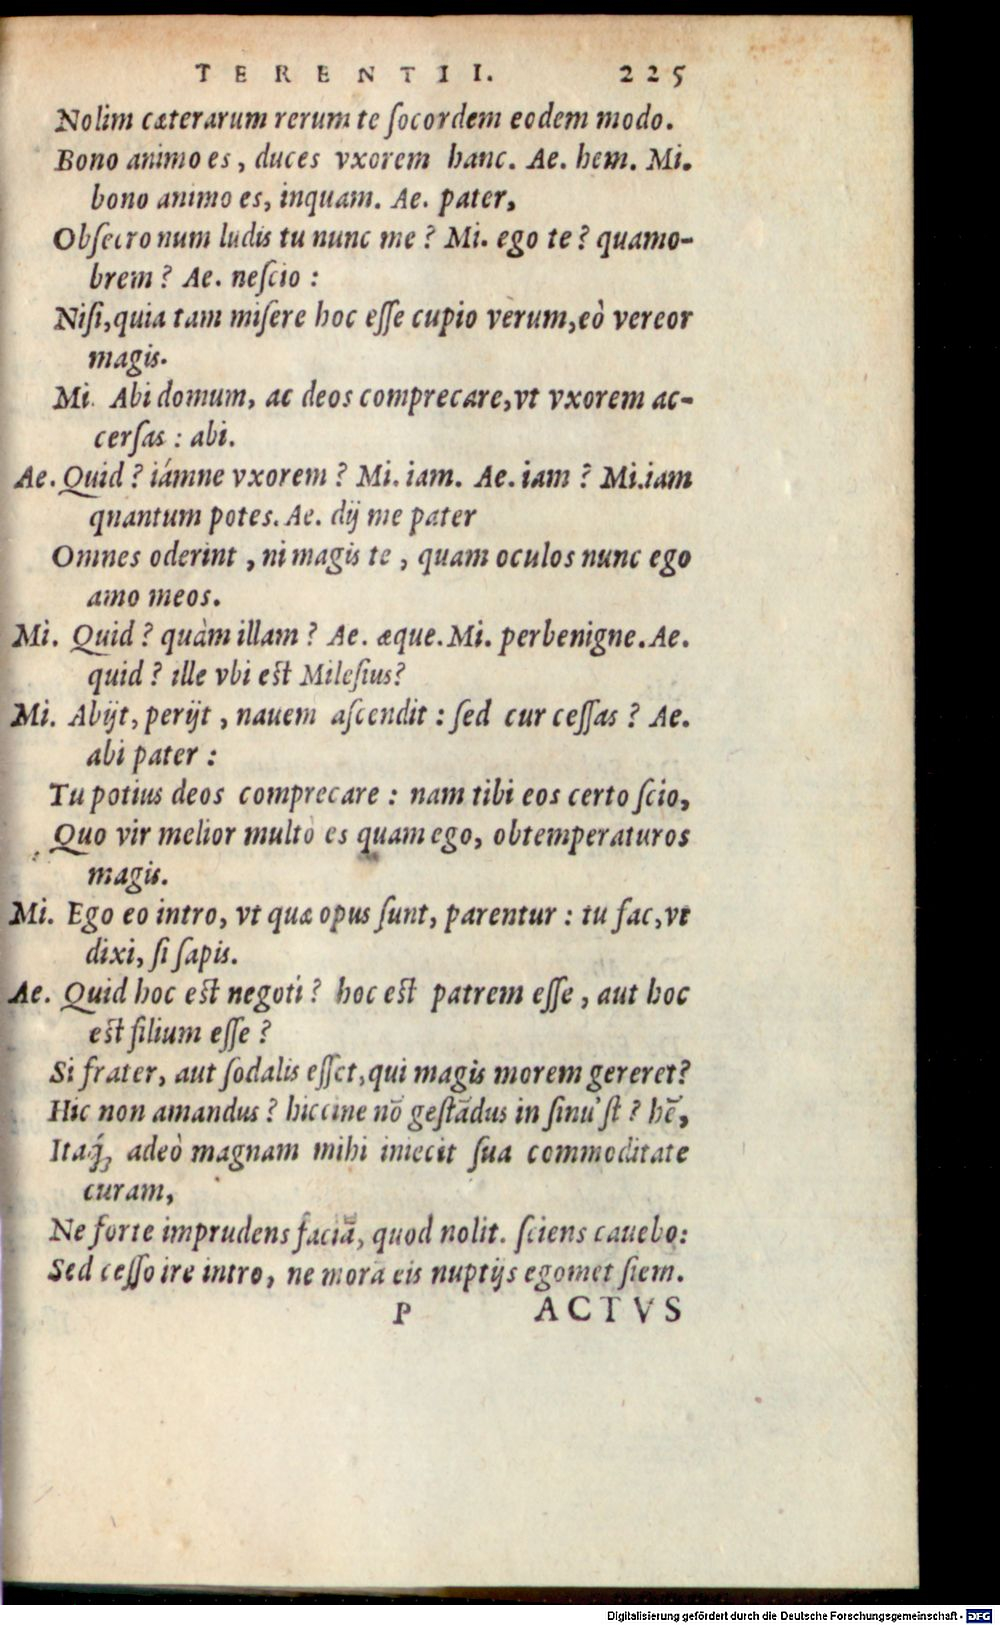 TERENTII. 225
Nolim cæterarum rerum te ſocordem eodem modo.
Bono animo es, duces vxorem hanc. Ae. hem. Mi.
bono animo es, inquam. Ae. pater,
Obſecro num ludis tu nunc me? Mi. ego te? quamo-
brem? Ae. neſcio:
Niſi, quia tam miſere hoc eſſe cupio verum, eò vereor
magis.
Mi. Abi domum, ac deos comprecare, vt vxorem ac-
cerſas: abi.
Ae. Quid? iámne vxorem? Mi. iam. Ae. iam? Mi. iam
qnantum potes. Ae. dij me pater
Omnes oderint, ni magis te, quam oculos nunc ego
amo meos.
Mi. Quid? quàm illam? Ae. æque. Mi. perbenigne. Ae.
quid? ille vbi eſt Mileſius?
Mi. Abijt, perijt, nauem aſcendit: ſed cur ceſſas? Ae.
abi pater:
Tu potius deos comprecare: nam tibi eos certo ſcio,
Quo vir melior multò es quam ego, obtemperaturos
magis.
Mi. Ego eo intro, vt quæ opus ſunt, parentur: tu fac, vt
dixi, ſi ſapis.
Ae. Quid hoc eſt negoti? hoc eſt patrem eſſe, aut hoc
eſt filium eſſe?
Si frater, aut ſodalis eſſet, qui magis morem gereret?
Hic non amandus? hiccine nō geſtādus in ſinu'ſt? hē,
Itaq́ꝫ adeò magnam mihi iniecit ſua commoditate
curam,
Ne forte imprudens faciā, quod nolit. ſciens cauebo:
Sed ceſſo ire intro, ne mora eis nuptijs egomet ſiem.
P ACTVS
Digitalisierung gefördert durch die Deutsche Forschungsgemeinschaft - DFG